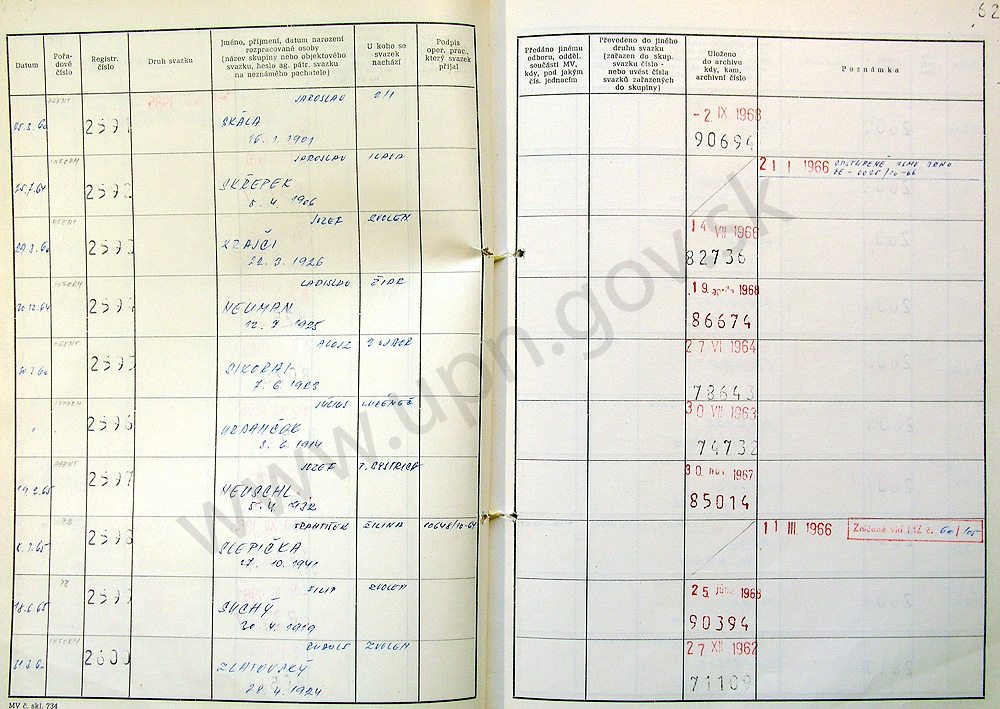 62
Datum
Pořa-
dové
číslo
Registr.
číslo
Druh svazku
Jméno, příjmení, datum narození
rozpracované osoby
(název skupiny nebo objektového
svazku, heslo ag. pátr. svazku
na neznámého pachatele)
U koho se
svazek
nachází
Podpis
oper. prac.,
který svazek
přijal
Předáno jinému
odboru, odděl.
součásti MV,
kdy, pod jakým
čís. jednacím
Převedeno do jiného
druhu svazku
(zařazen do skup.
svazku číslo -
nebo uvést čísla
svazků zařazených
do skupiny)
Uloženo
do archivu
kdy, kam,
archivní číslo
Poznámka
AGENT JAROSLAV
2591 ŠKALA
16. 1. 1901
- 2 IX. 1968
90694
INFORM JAROSLAV
25.7.64 2592 SKŘEPEK
5. 4. 1906
21 I 1966
AGENT JOZEF ZVOLEN
2593 KRAJČI
22. 3. 1926
14 VII 1966
82736
INFORM LADISLAV ŽIAR
20.12.64 2594 NEUMAN
1925
19. apríla 1968
86674
AGENT ALOJZ
2595 SIKORA
7. 6. 1923
27 VI 1964
78643
INFORM JÚLIUS LUČENEC
2596
3. 6. 1914
30 VII 1963
74732
AGENT JOZEF P. BYSTRICA
19.2.65 2597 NEUSCHL
5. 4. 1932
30. nov. 1967
85014
PB FRANTIŠEK ŽILINA 10648/10-64
2598 SLEPIČKA
27. 10. 1941
11 III. 1966 Zničené viď LMZ č. 60/105
PB FILIP ZVOLEN
18.6.65 2599 SUCHÝ
20. 4. 1919
25. júla 1968
90394
INFORM RUDOLF ZVOLEN
2600 ZLATOVSKÝ
28. 4. 1924
27 XII 1962
71109
MV č. skl. 734
www.upn.gov.sk